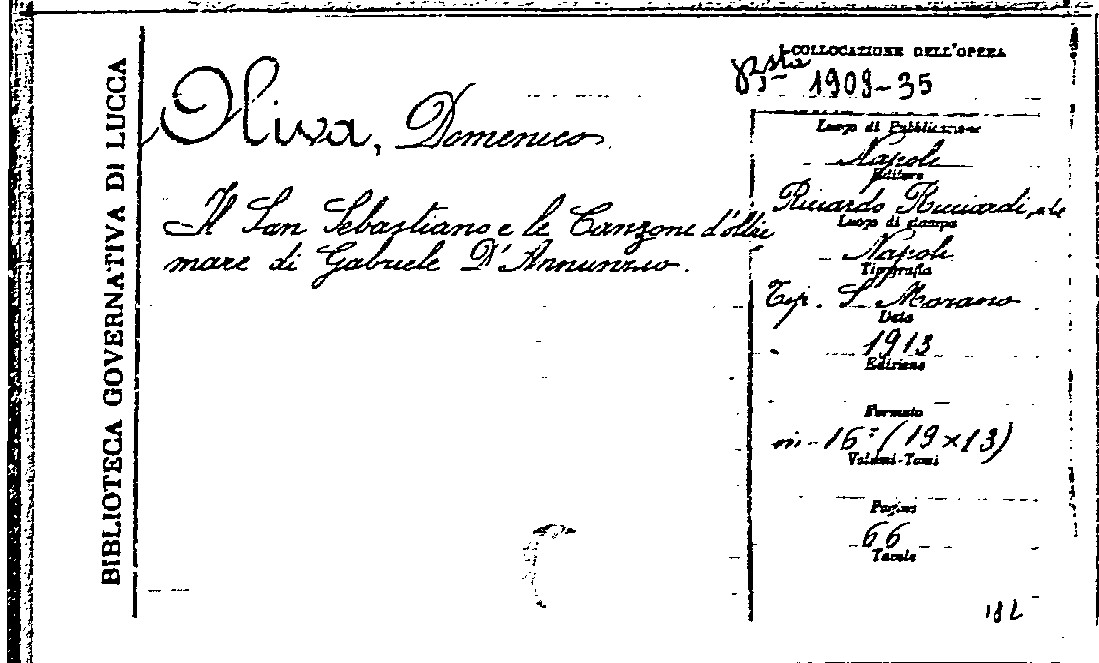 BIBLIOTECA GOVERNATIVA DI LUCCA
COLLOCAZIONE DELL'OPERA
1909-35
Oliva, Domenico
Il San Sebastiano e le Canzone d'oltre
mare di Gabriele D'Annunzio.
Luogo di Pubblicazione
Napoli
Editore
Riccardo Ricciardi, ed.
Luogo di stampa
Napoli
Tipografia
Tip. S. Morano
Data
1913
Edizione
Formato
in-16º (19×13)
Volumi-Tomi
Pagine
66
Tavole